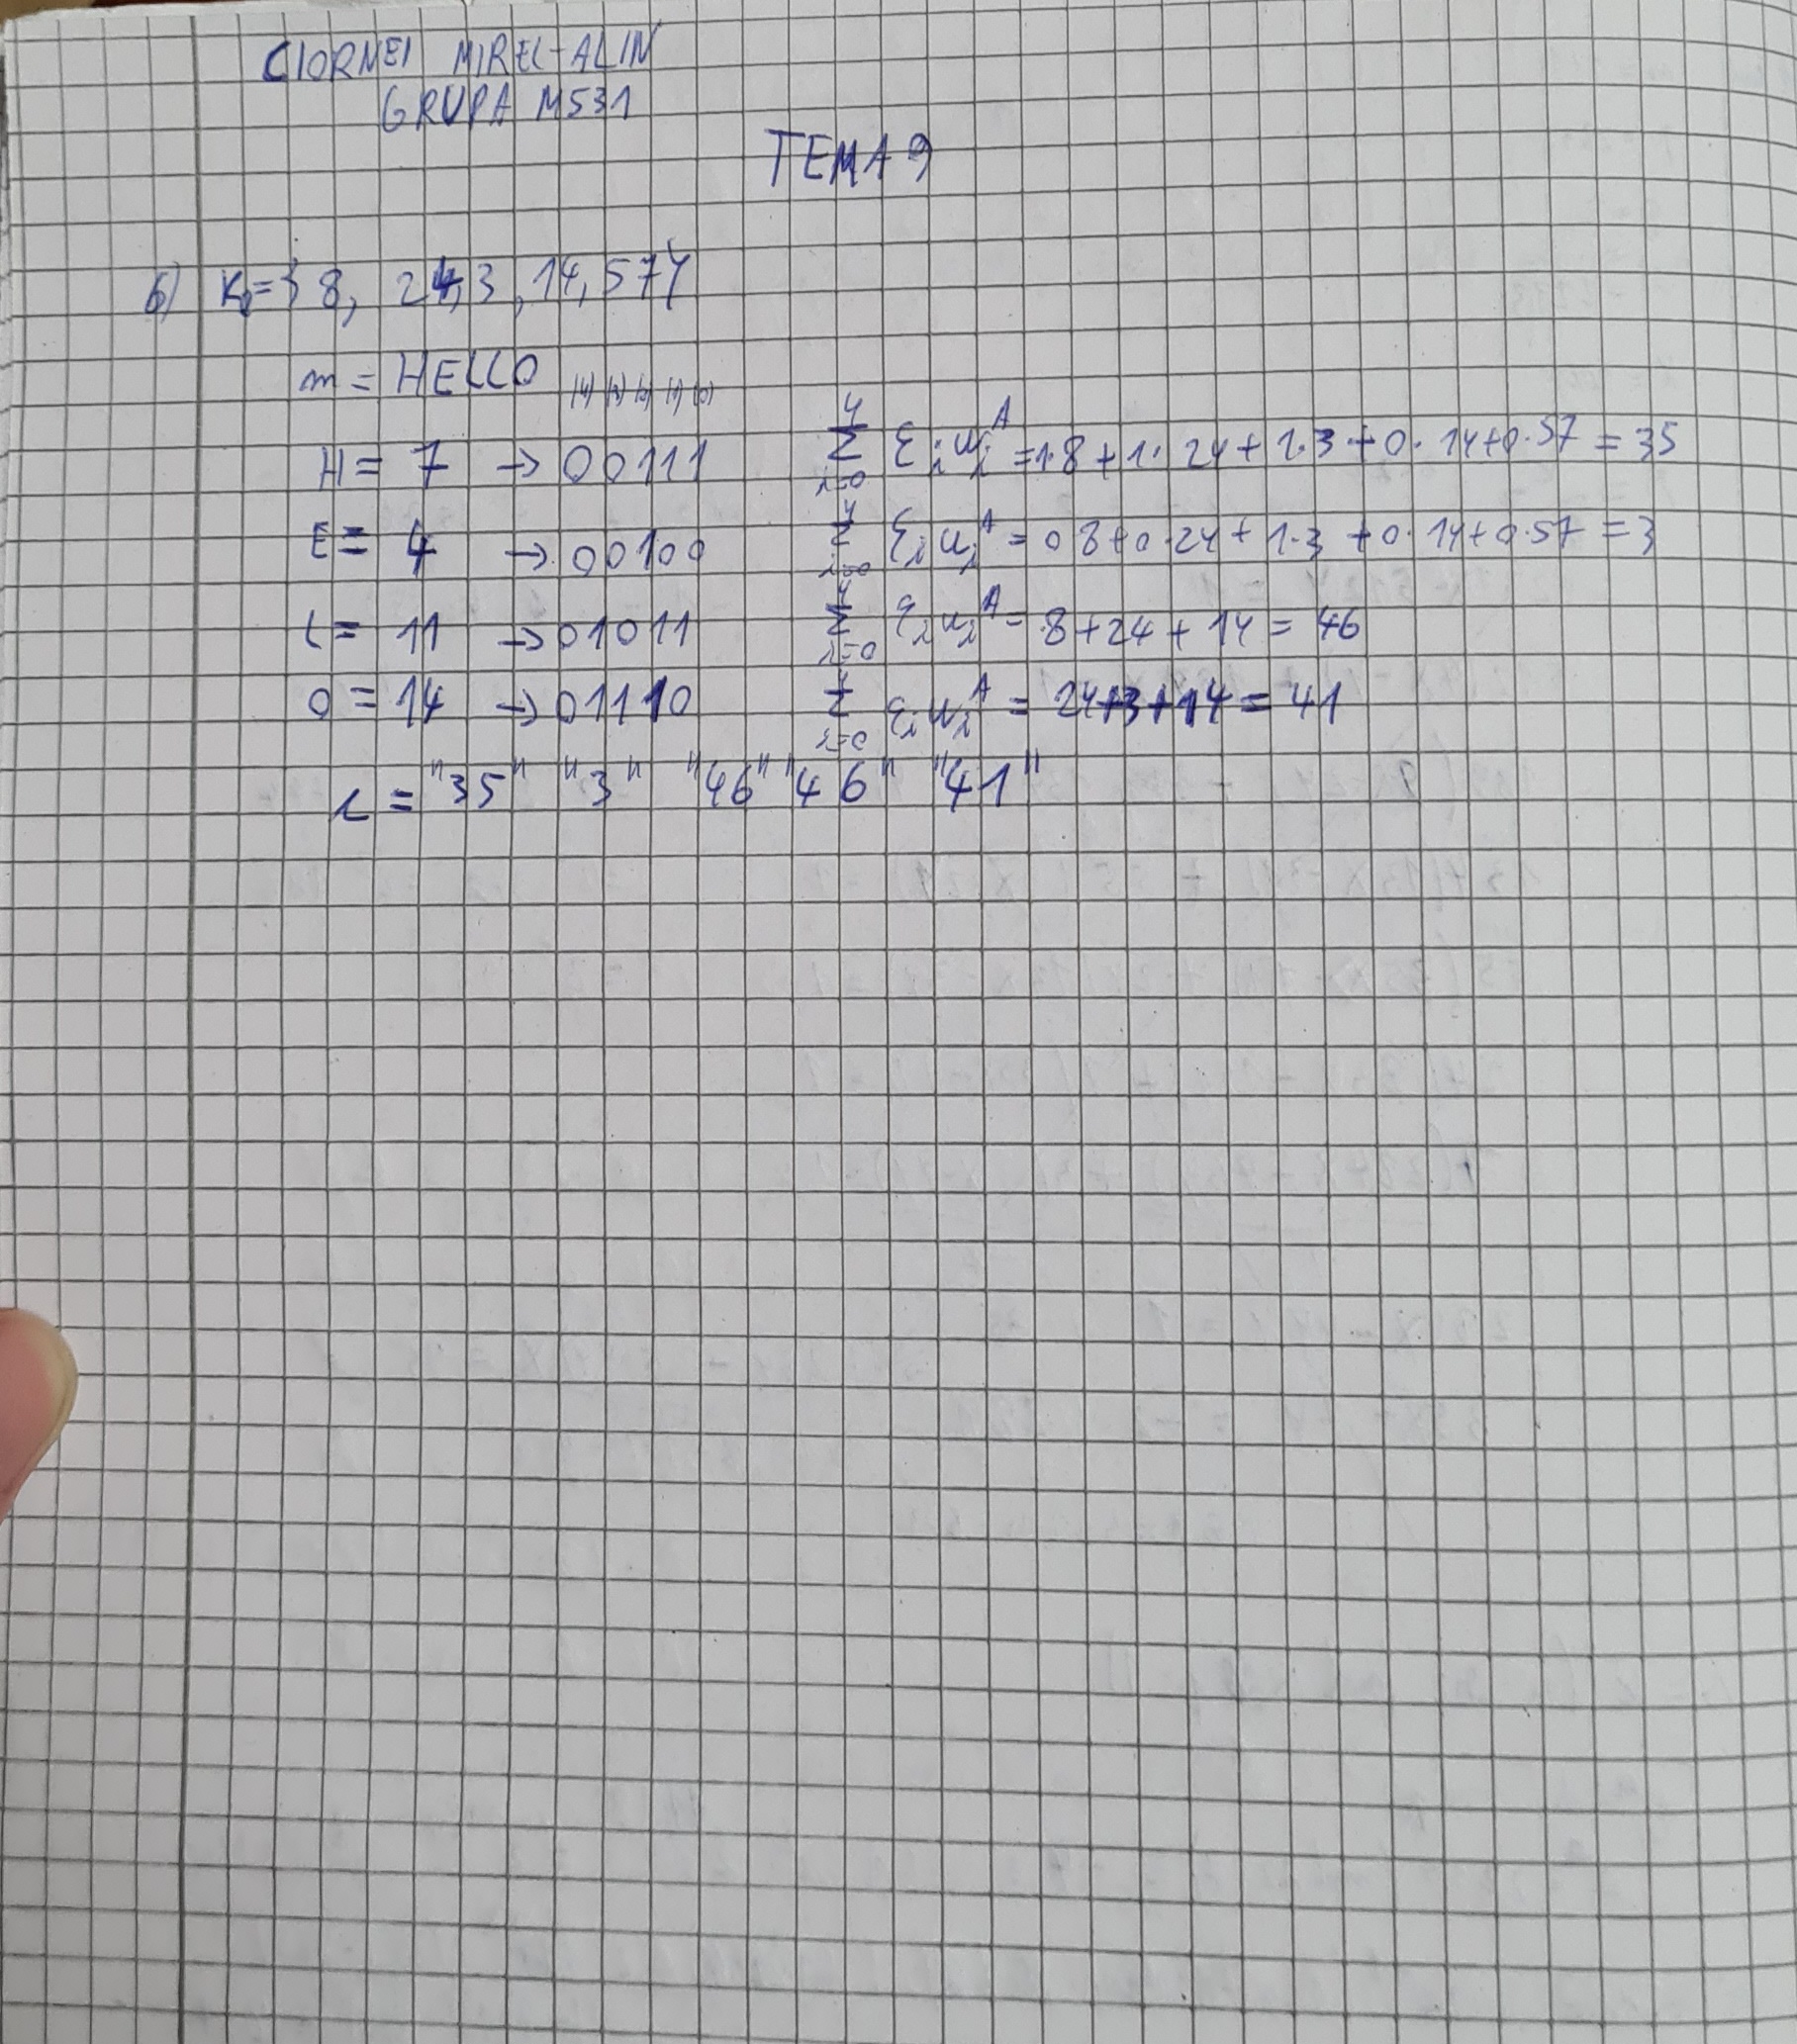 CIORNEI MIREL-ALIN
GRUPA M531
TEMA 9
6) Kp = { 8, 24, 3, 14, 57 }
m = HELLO (4) (3) (2) (1) (0)
H = 7 → 00111 4 Σ i=0 εi wi^A = 1·8 + 1·24 + 1·3 + 0·14 + 0·57 = 35
E = 4 → 00100 4 Σ i=0 εi wi^A = 0 8 + 0·24 + 1·3 + 0·14 + 0·57 = 3
L = 11 → 01011 4 Σ i=0 εi wi^A = 8 + 24 + 14 = 46
O = 14 → 01110 4 Σ i=0 εi wi^A = 24 + 3 + 14 = 41
c = "35" "3" "46" "46" "41"